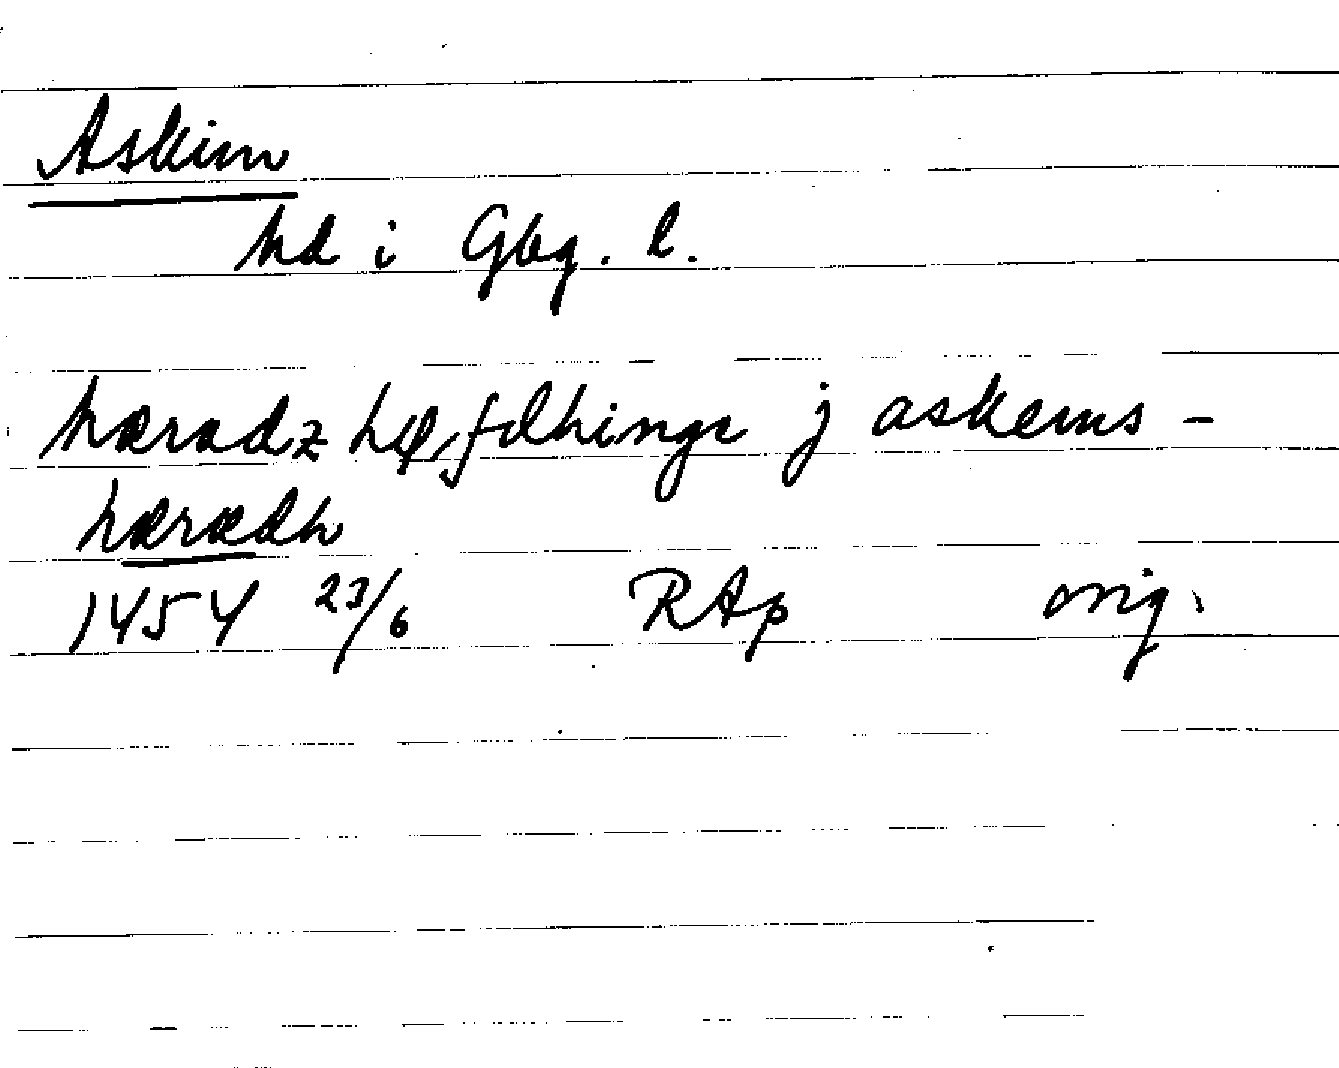 Askim
hd i Gbg. l.
hæradz høfdhinge j askems-
hærædh
1454 23/6 RAp orig.